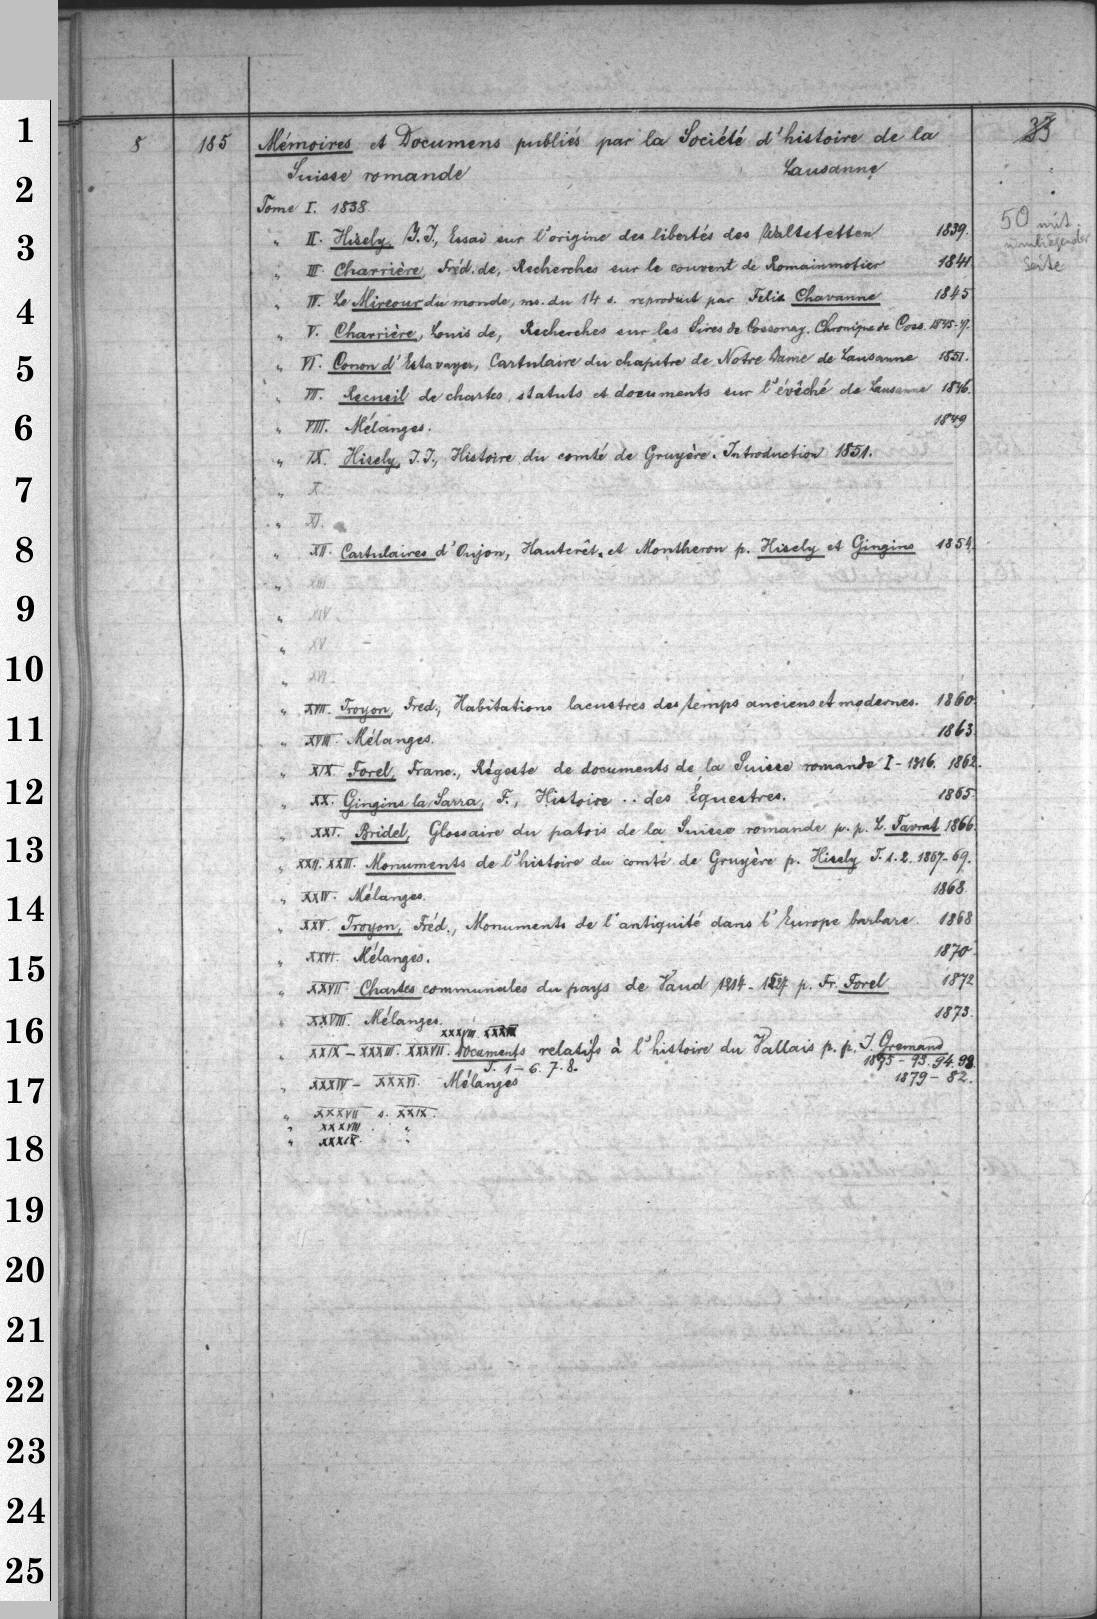 8 185 Mémoires et Documens publiés par la Société d'histoire de la
Suisse romande Lausanne
Tome I. 1838
" II. Hisely, J. J., Essai sur l'origine des libertés des Waltstetten 1839.
50 mit
umliegender
Seite
" III Charrière, Fréd. de, Recherches sur le couvent de Romainmotier 1841
" IV. Le Mireour du monde, ms. du 14 s. reproduit par Felix Chavanne 1845
" V. Charrière, Louis de, Recherches sur les Sires de Cossonay. Chronique de Coss. 1845-7.
" VI. Conon d'Estavayer, Cartulaire du chapitre de Notre Dame de Lausanne 1851.
" VII. Recueil de chartes, statuts et documents sur l'évêché de Lausanne 1846.
" VIII. Mélanges. 1849
" IX. Hisely, J. J., Histoire du comté de Gruyère. Introduction 1851.
" X.
" XI.
" XII. Cartulaires d'Oujon, Hautcrêt, et Montheron p. Hisely et Gingins 1854.
" XIII
" XIV.
" XV -
" XVI.
" XVII. Troyon, Fred., Habitations lacustres des temps anciens et modernes. 1860.
" XVIII. Mélanges. 1863.
" XIX. Forel, Franc., Régeste de documents de la Suisse romande I - 1316. 1862.
" XX. Gingins la Sarra, F., Histoire .. des Equestres. 1865.
" XXI. Bridel, Glossaire du patois de la Suisse romande p. p. L. Favrat 1866.
" XXII. XXIII. Monuments de l'histoire du comté de Gruyère p. Hisely T. 1. 2. 1867-69.
" XXIV. Mélanges. 1868.
" XXV. Troyon, Fréd., Monuments de l'antiquité dans l'Europe barbare. 1868
" XXVI. Mélanges. 1870.
" XXVII Chartes communales du pays de Vaud 1214 - 1527 p. Fr. Forel 1872
" XXVIII. Mélanges. 1873.
XXXVIII. XXXIX
" XXIX - XXXIII. XXXVII. Documents relatifs à l'histoire du Vallais p. p. J. Gremaud
T. 1 - 6. 7. 8. 1875 - 93. 94. 98.
" XXXIV - XXXVI. Mélanges 1879 - 82.
" XXXVII s. XXIX.
" XXXVIII "
" XXXIX. "